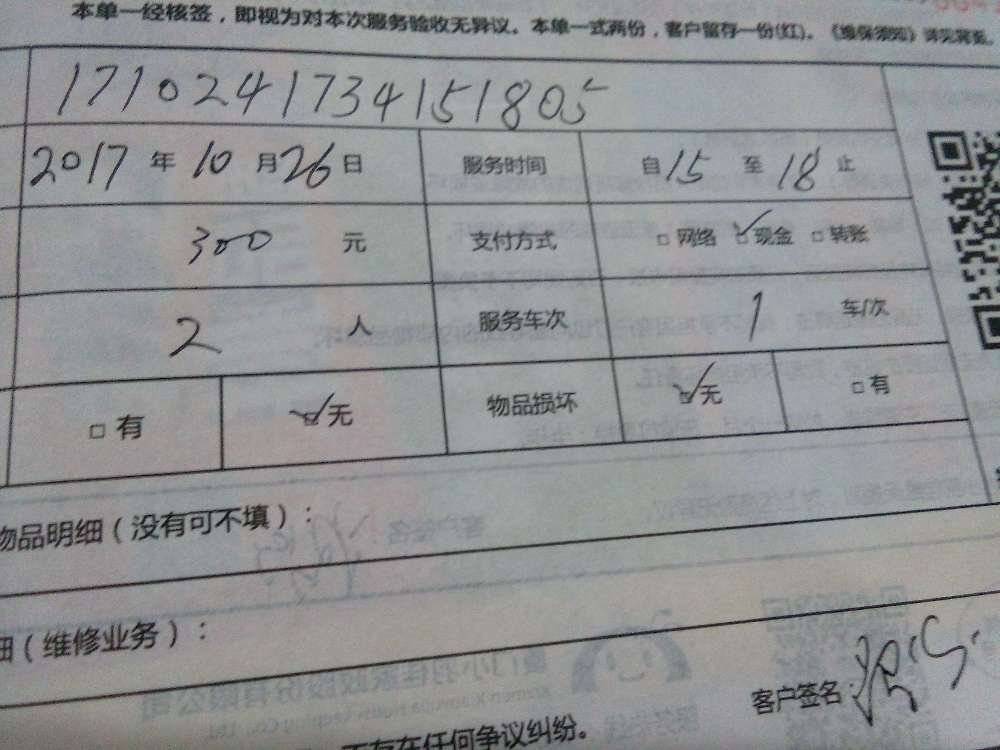 本单一经核签，即视为对本次服务验收无异议。本单一式两份，客户留存一份(红)。《维保须知》详见背面。
1710241734151805
2017年10月26日 服务时间 自15至18止
300元 支付方式 □网络 ☑现金 □转账
2人 服务车次 1车/次
□有 ☑无 物品损坏 ☑无 □有
物品明细（没有可不填）：
细（维修业务）：
客户签名：
不存在任何争议纠纷。